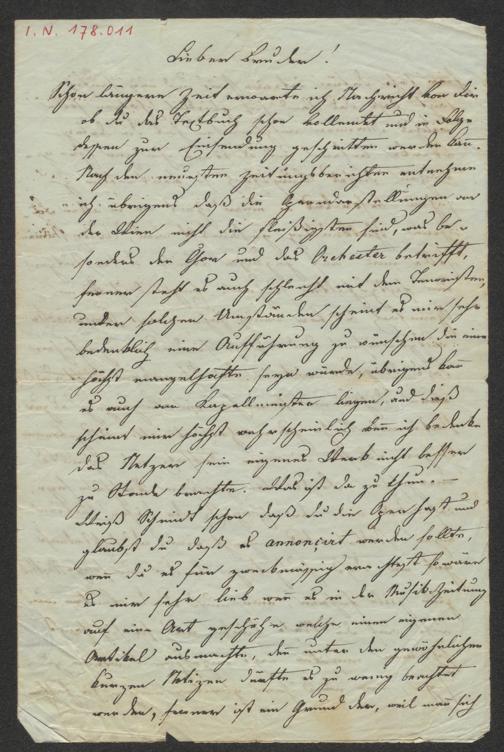 I. N. 178.011
Lieber Bruder!
Schon längere Zeit erwarte ich Nachricht von dir
ob du das Textbuch schon vollendet und in Folge
dessen zur Einsendung geschritten werden kan.
Nach den neuesten Zeitungsberichten entnehme
ich übrigens daß die Opernvorstellungen an
der Wien nicht die fleißigsten sind, was be-
sonders den Chor und das Orchester betrifft,
ferner steht es auch schlecht mit den Tenoristen,
unter solchen Umständen scheint es mir sehr
bedenklich eine Aufführung zu wünschen die eine
höchst mangelhafte seyn würde, übrigens kan
es auch am Kapellmeister liegen, und dieß
scheint mir höchst wahrscheinlich wen ich bedenke
das Netzer sein eigenes Werk nicht besser
zu Stande brachte. Was ist da zu thun. –
Weiß Schmidt schon daß du die Oper hast und
glaubst du daß es annonçirt werden sollte,
wen du es für zweckmässig erachtest so wäre
es mir sehr lieb wen es in der Musik-Zeitung
auf eine Art geschähe welche einen eigenen
Artikel ausmachte, den unter den gewöhnlichen
kurzen Notizen dürfte es zu wenig beachtet
werden, ferner ist ein Grund der, weil man sich